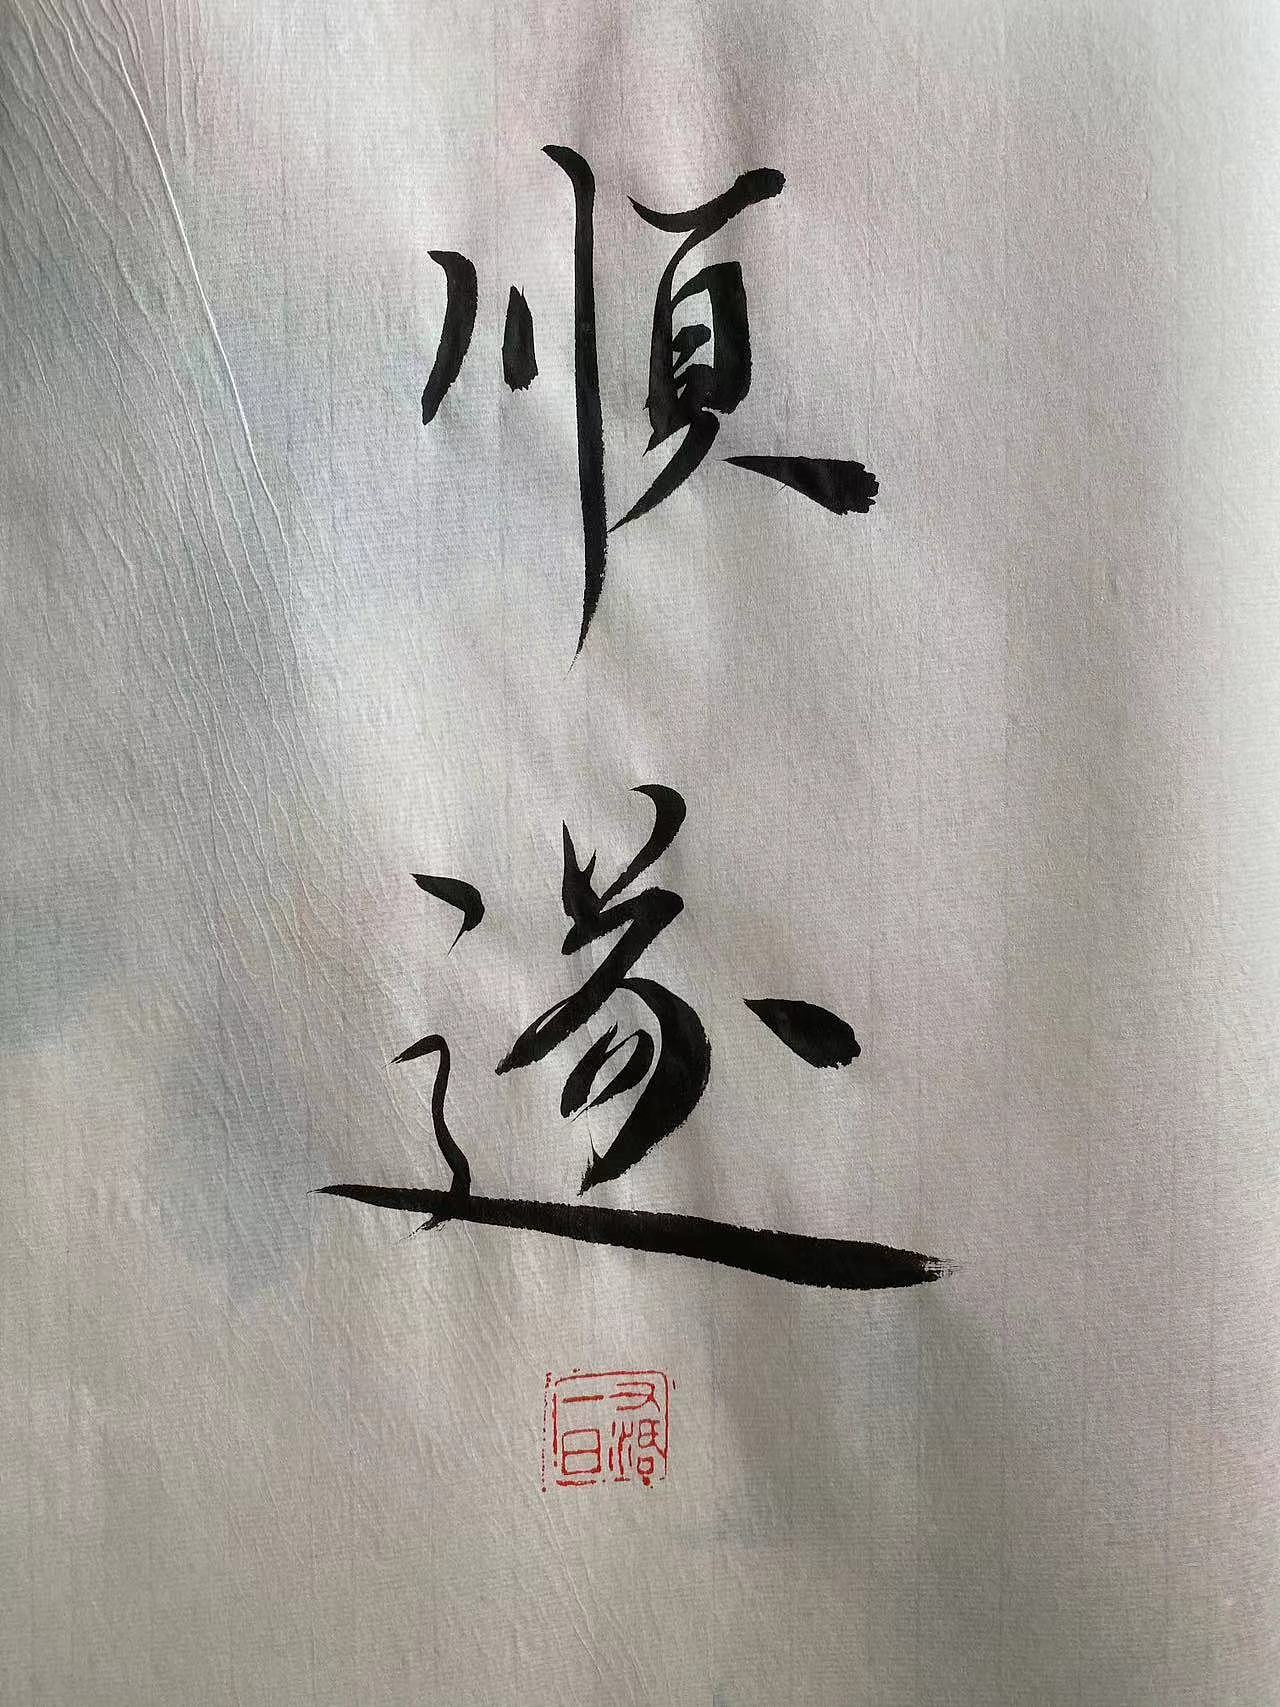 順
遂
又活
一日